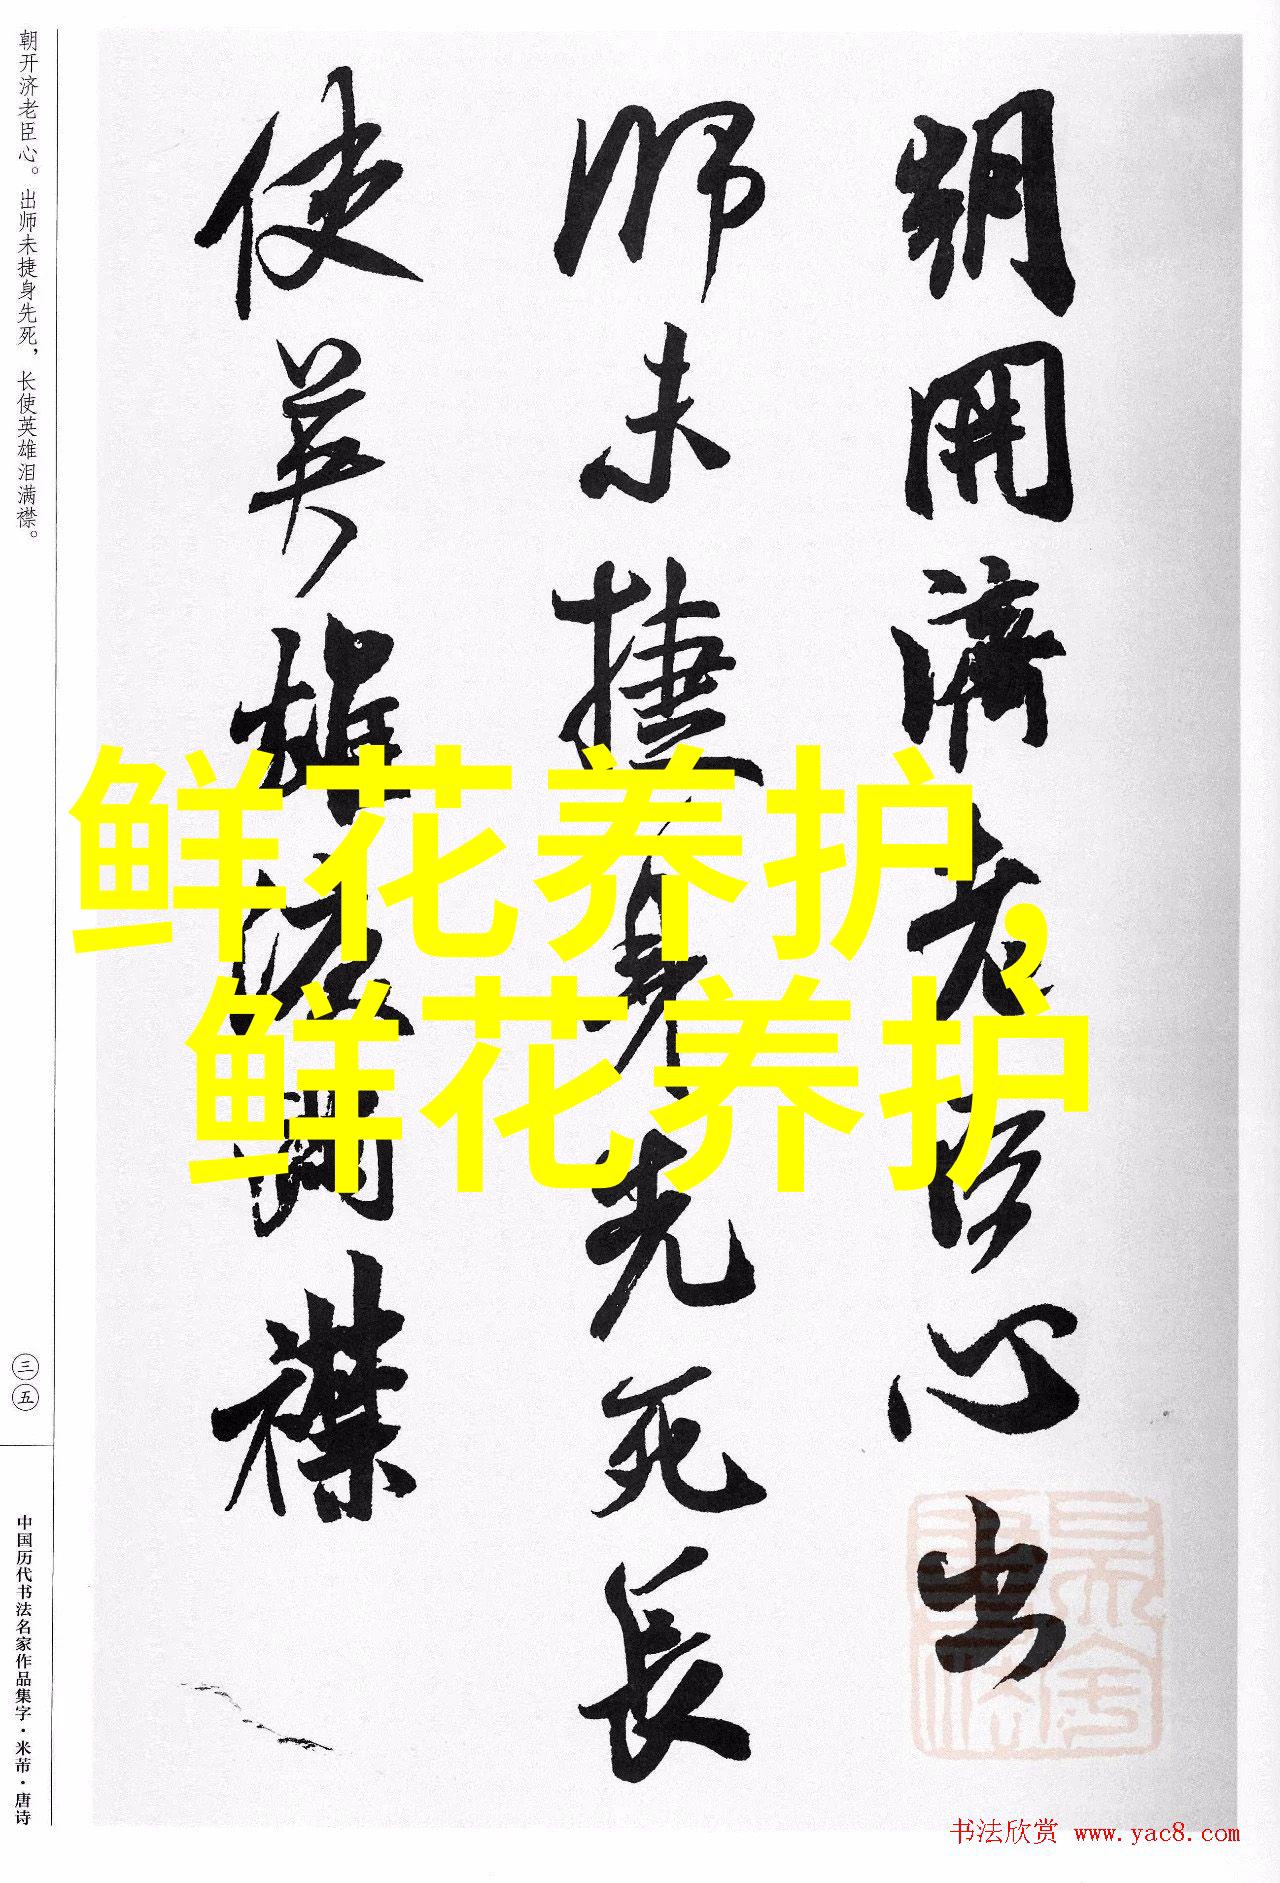 朝开济老臣心。出师未捷身先死，长使英雄泪满襟。
朝開濟老臣心出
師未捷身先死長
使英雄淚滿襟
鲜花养护，
鲜花养护
三五
中国历代书法名家作品集字·米芾·唐诗
书法欣赏 www.yac8.com